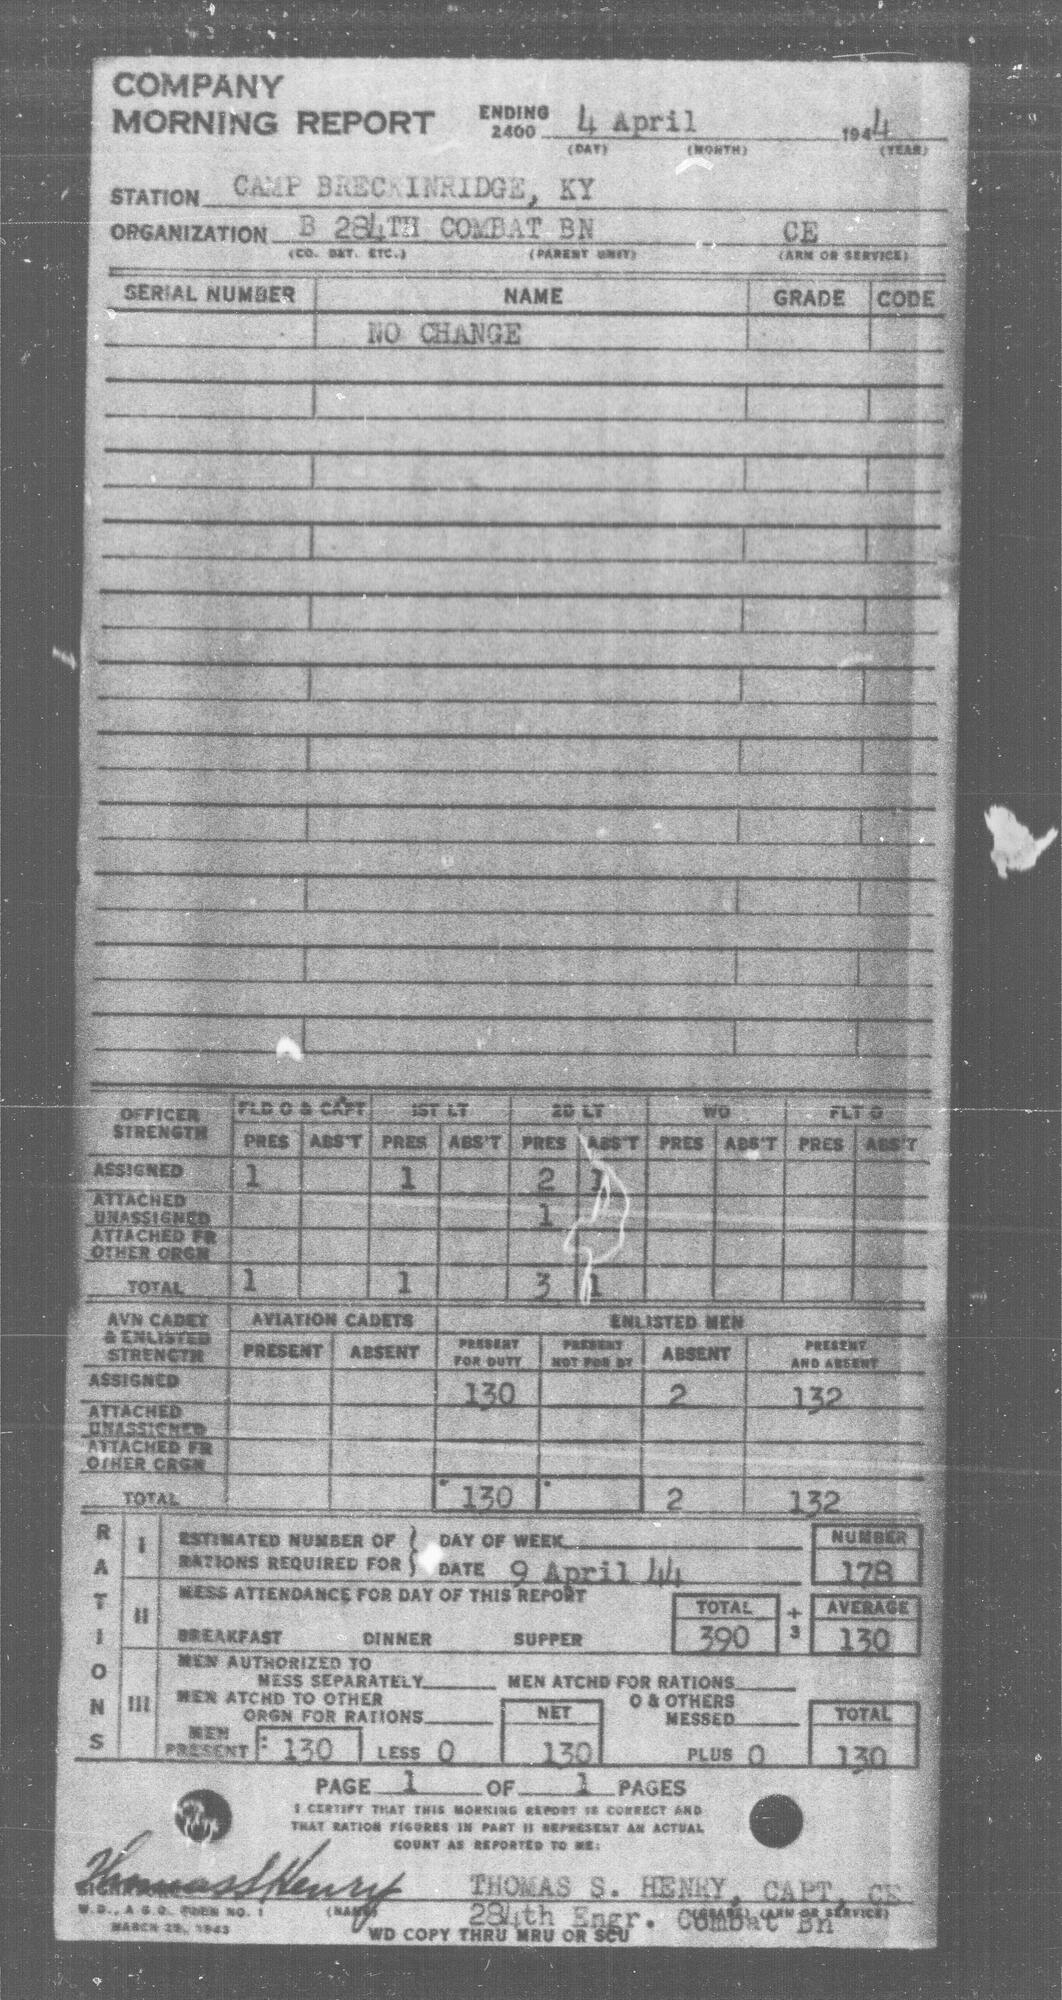 COMPANY
MORNING REPORT ENDING 2400 4 April 1944
(DAY) (MONTH) (YEAR)
STATION CAMP BRECKINRIDGE, KY
ORGANIZATION B 284TH COMBAT BN CE
(CO. DET. ETC.) (PARENT UNIT) (ARM OR SERVICE)
SERIAL NUMBER NAME GRADE CODE
NO CHANGE
OFFICER STRENGTH FLD O & CAPT 1ST LT 2D LT WO FLT O
PRES ABS'T PRES ABS'T PRES ABS'T PRES ABS'T PRES ABS'T
ASSIGNED 1 1 2 1
ATTACHED UNASSIGNED 1
ATTACHED FR OTHER ORGN
TOTAL 1 1 3 1
AVN CADET & ENLISTED STRENGTH AVIATION CADETS ENLISTED MEN
PRESENT ABSENT PRESENT FOR DUTY PRESENT NOT FOR DY ABSENT PRESENT AND ABSENT
ASSIGNED 130 2 132
ATTACHED UNASSIGNED
ATTACHED FR OTHER ORGN
TOTAL 130 2 132
RATIONS
I ESTIMATED NUMBER OF RATIONS REQUIRED FOR DAY OF WEEK NUMBER
DATE 9 April 44 178
II MESS ATTENDANCE FOR DAY OF THIS REPORT TOTAL ÷ 3 AVERAGE
BREAKFAST DINNER SUPPER 390 130
III MEN AUTHORIZED TO MESS SEPARATELY MEN ATCHD FOR RATIONS
MEN ATCHD TO OTHER ORGN FOR RATIONS NET O & OTHERS MESSED TOTAL
MEN PRESENT 130 LESS 0 130 PLUS 0 130
PAGE 1 OF 1 PAGES
I CERTIFY THAT THIS MORNING REPORT IS CORRECT AND
THAT RATION FIGURES IN PART II REPRESENT AN ACTUAL
COUNT AS REPORTED TO ME:
Thomas S Henry THOMAS S. HENRY, CAPT, CE
SIGNATURE (NAME) (GRADE) (ARM OR SERVICE)
W.D., A.G.O. FORM NO. 1 284th Engr. Combat Bn
MARCH 29, 1943 WD COPY THRU MRU OR SCU